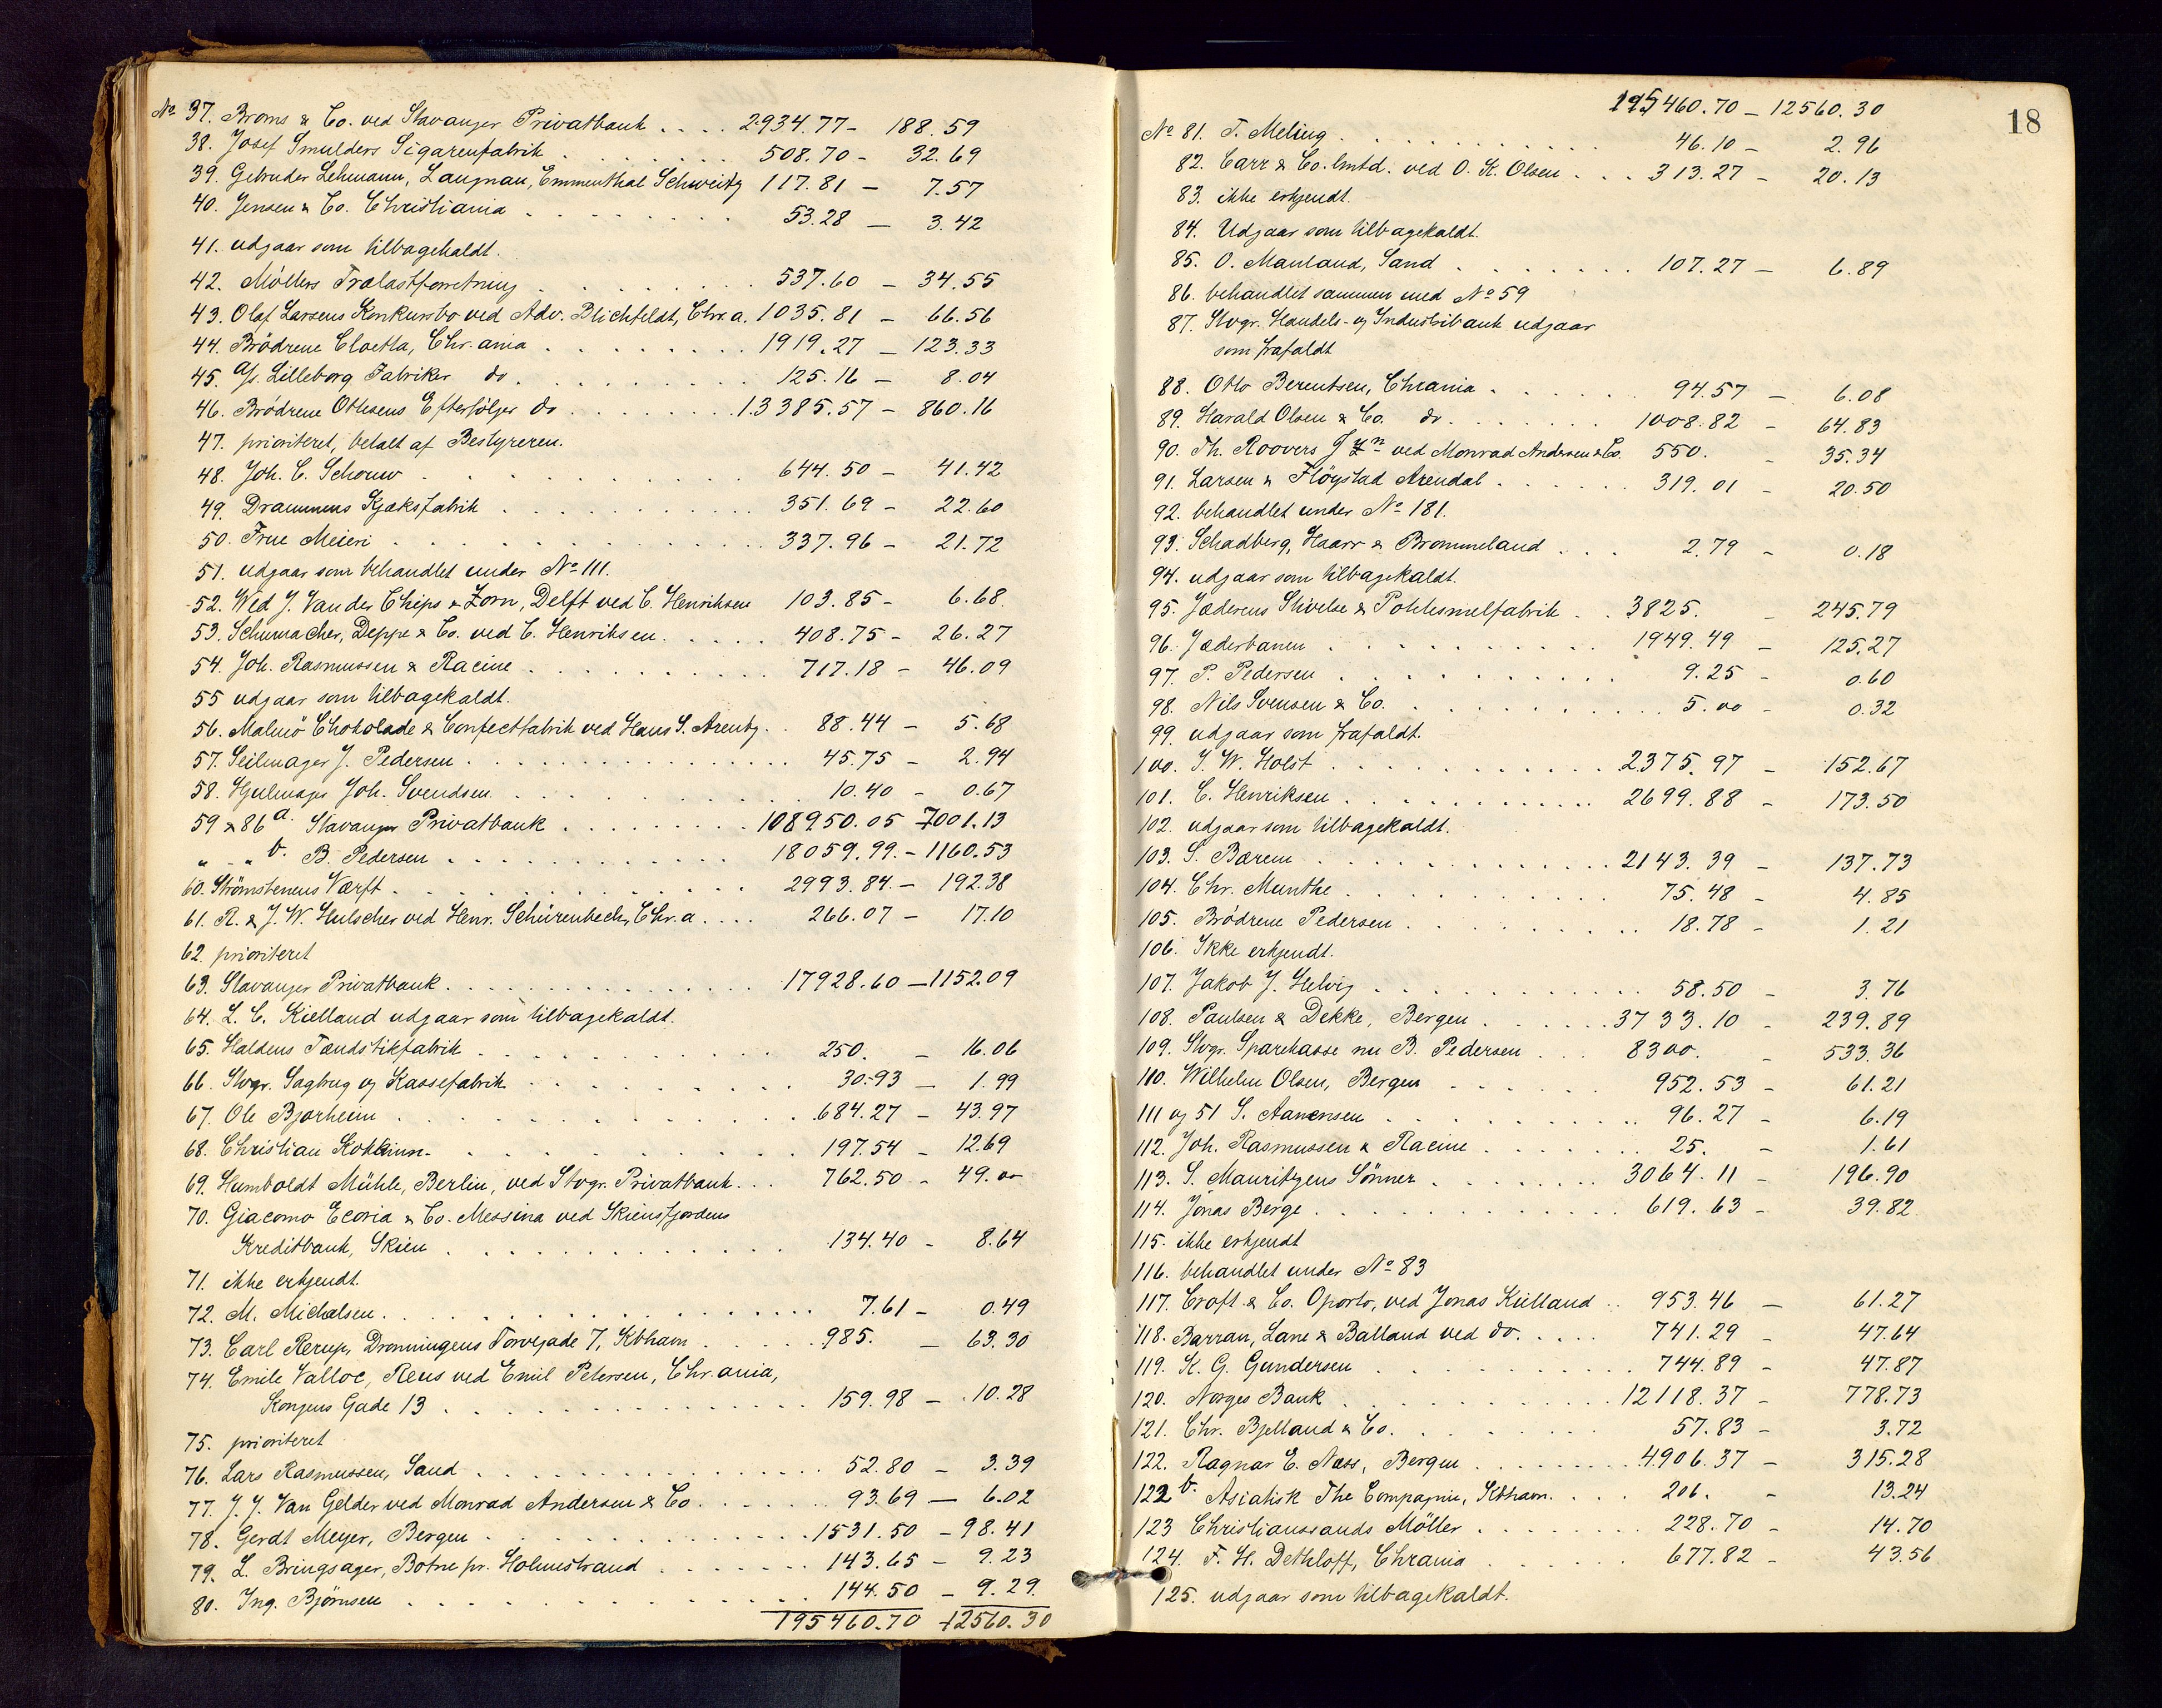 No 37. Broms & Co. ved Stavanger Privatbank .... 2934.77 - 188.59
38. Josef Smulders Sigarenfabrik ..... 508.70 - 32.69
39. Gebruder Lehmann, Laugnau, Emmenthal Schweitz 117.81 - 7.57
40. Jensen & Co. Christiania ..... 53.28 - 3.42
41. udgaar som tilbagekaldt.
42. Möllers Trælastforretning ..... 537.60 - 34.55
43. Olaf Larsens Konkursbo ved Adv. Blichfeldt, Chr.a. 1035.81 - 66.56
44. Brödrene Cloetta, Chr.ania ..... 1919.27 - 123.33
45. A/s. Lilleborg Fabriker do. ..... 125.16 - 8.04
46. Brödrene Othsens Efterfölger do ..... 13385.57 - 860.16
47. prioriteret, betalt af Bestyreren.
48. Joh. C. Schouw ..... 644.50 - 41.42
49. Drammens Kjæksfabrik ..... 351.69 - 22.60
50. Frue Meieri ..... 337.96 - 21.72
51. udgaar som behandlet under No 111.
52. Wed J. Van der Chijs & Zorn, Delft ved C. Henriksen 103.85 - 6.68
53. Schumacher, Deppe & Co. ved C. Henriksen ..... 408.75 - 26.27
54. Joh. Rasmussen & Racine ..... 717.18 - 46.09
55 udgaar som tilbagekaldt.
56. Malmö Chokolade & Confectfabrik ved Hans S. Arentz .. 88.44 - 5.68
57. Seilmager J. Pedersen ..... 45.75 - 2.94
58. Hjulmager Joh. Svendsen ..... 10.40 - 0.67
59 & 86 a. Stavanger Privatbank ..... 108950.05 7001.13
" - " b. B. Pedersen ..... 18059.99. - 1160.53
60. Strömstenens Værft ..... 2993.84. - 192.38
61. R. & J. W. Hulscher ved Henr. Schürenbeck, Chr.a .... 266.07 - 17.10
62. prioriteret
63. Stavanger Privatbank ..... 17928.60 - 1152.09
64. L. C. Kielland udgaar som tilbagekaldt.
65. Haldens Tændstikfabrik ..... 250. - 16.06
66. Stvgr. Sagbrug og Kassefabrik ..... 30.93 - 1.99
67. Ole Bjorheim ..... 684.27 - 43.97
68. Christian Kothinn. ..... 197.54 - 12.69
69. Humboldt Mühle, Berlin, ved Stvgr. Privatbank ... 762.50 - 49.00
70. Giacomo Ecoria & Co. Messina ved Skiensfjordens
Kreditbank, Skien ..... 134.40 - 8.64
71. ikke erkjendt.
72. M. Michalsen ..... 7.61 - 0.49
73. Carl Rerup, Dronningens Tvergade 7, Kbhavn ..... 985. - 63.30
74. Emile Valloc, Reus ved Emil Petersen, Chr.ania,
Kongens Gade 13 ..... 159.98 - 10.28
75. prioriteret
76. Lars Rasmussen, Sand ..... 52.80 - 3.39
77. J. J. Van Gelder ved Monrad Andersen & Co ..... 93.69 - 6.02
78. Gerdt Meyer, Bergen ..... 1531.50 - 98.41
79. L. Bringsager, Botne pr. Holmestrand ..... 143.65 - 9.23
80. Ing. Björnsen ..... 144.50 - 9.29
195460.70 12560.30
195460.70 - 12560.30
18
No 81. T. Meling ..... 46.10 - 2.96
82. Carr & Co. lmtd. ved O. K. Olsen ... 313.27 - 20.13
83. ikke erkjendt.
84. Udgaar som tilbagekaldt.
85. O. Manland, Sand ..... 107.27 - 6.89
86. behandlet sammen med No 59
87. Stvgr. Handels- og Industribank udgaar
som frafaldt
88. Otto Berentsen, Chrania ..... 94.57 - 6.08
89. Harald Olsen & Co. do. ..... 1008.82 - 64.83
90. Th. Roovers J Zn ved Monrad Andersen & Co. 550. - 35.34
91. Larsen & Flöystad Arendal ..... 319.01 - 20.50
92. behandlet under No 181.
93. Schadberg, Haarr & Brommeland ... 2.79 - 0.18
94. udgaar som tilbagekaldt.
95. Jæderens Stivelse & Potetesmelfabrik .. 3825. - 245.79
96. Jæderbanen ..... 1949.49 - 125.27
97. P. Pedersen ..... 9.25 - 0.60
98. Nils Svensen & Co. ..... 5.00 - 0.32
99. udgaar som frafaldt.
100. I. W. Holst ..... 2375.97 - 152.67
101. C. Henriksen ..... 2699.88 - 173.50
102. udgaar som tilbagekaldt.
103. S. Bærem ..... 2143.39 - 137.73
104. Chr. Munthe ..... 75.48 - 4.85
105. Brödrene Pedersen ..... 18.78 - 1.21
106. Ikke erkjendt.
107. Jakob J. Helvig ..... 58.50 - 3.76
108. Paulsen & Dekke, Bergen ..... 3733.10 - 239.89
109. Stvgr. Sparekasse nu B. Pedersen ... 8300. - 533.36
110. Wilhelm Olsen, Bergen ..... 952.53 - 61.21
111 og 51 S. Aanensen ..... 96.27 - 6.19
112. Joh. Rasmussen & Racine ..... 25. - 1.61
113. S. Mauritzens Sönner ..... 3064.11 - 196.90
114. Jonas Berge ..... 619.63 - 39.82
115. ikke erkjendt
116. behandlet under No 83
117. Croft & Co. Oporto, ved Jonas Kielland .. 953.46 - 61.27
118. Barran, Lane & Balland ved do. .... 741.29 - 47.64
119. K. G. Gundersen ..... 744.89 - 47.87
120. Norges Bank ..... 12118.37 - 778.73
121. Chr. Bjelland & Co. ..... 57.83 - 3.72
122. Ragnar E. Næss, Bergen ..... 4906.37 - 315.28
122 b. Asiatisk The Compagni, Kbhavn. ... 206. - 13.24
123 Christianssands Möller ..... 228.70 - 14.70
124. F. H. Dethloff, Chrania ..... 677.82 - 43.56
125. udgaar som tilbagekaldt.